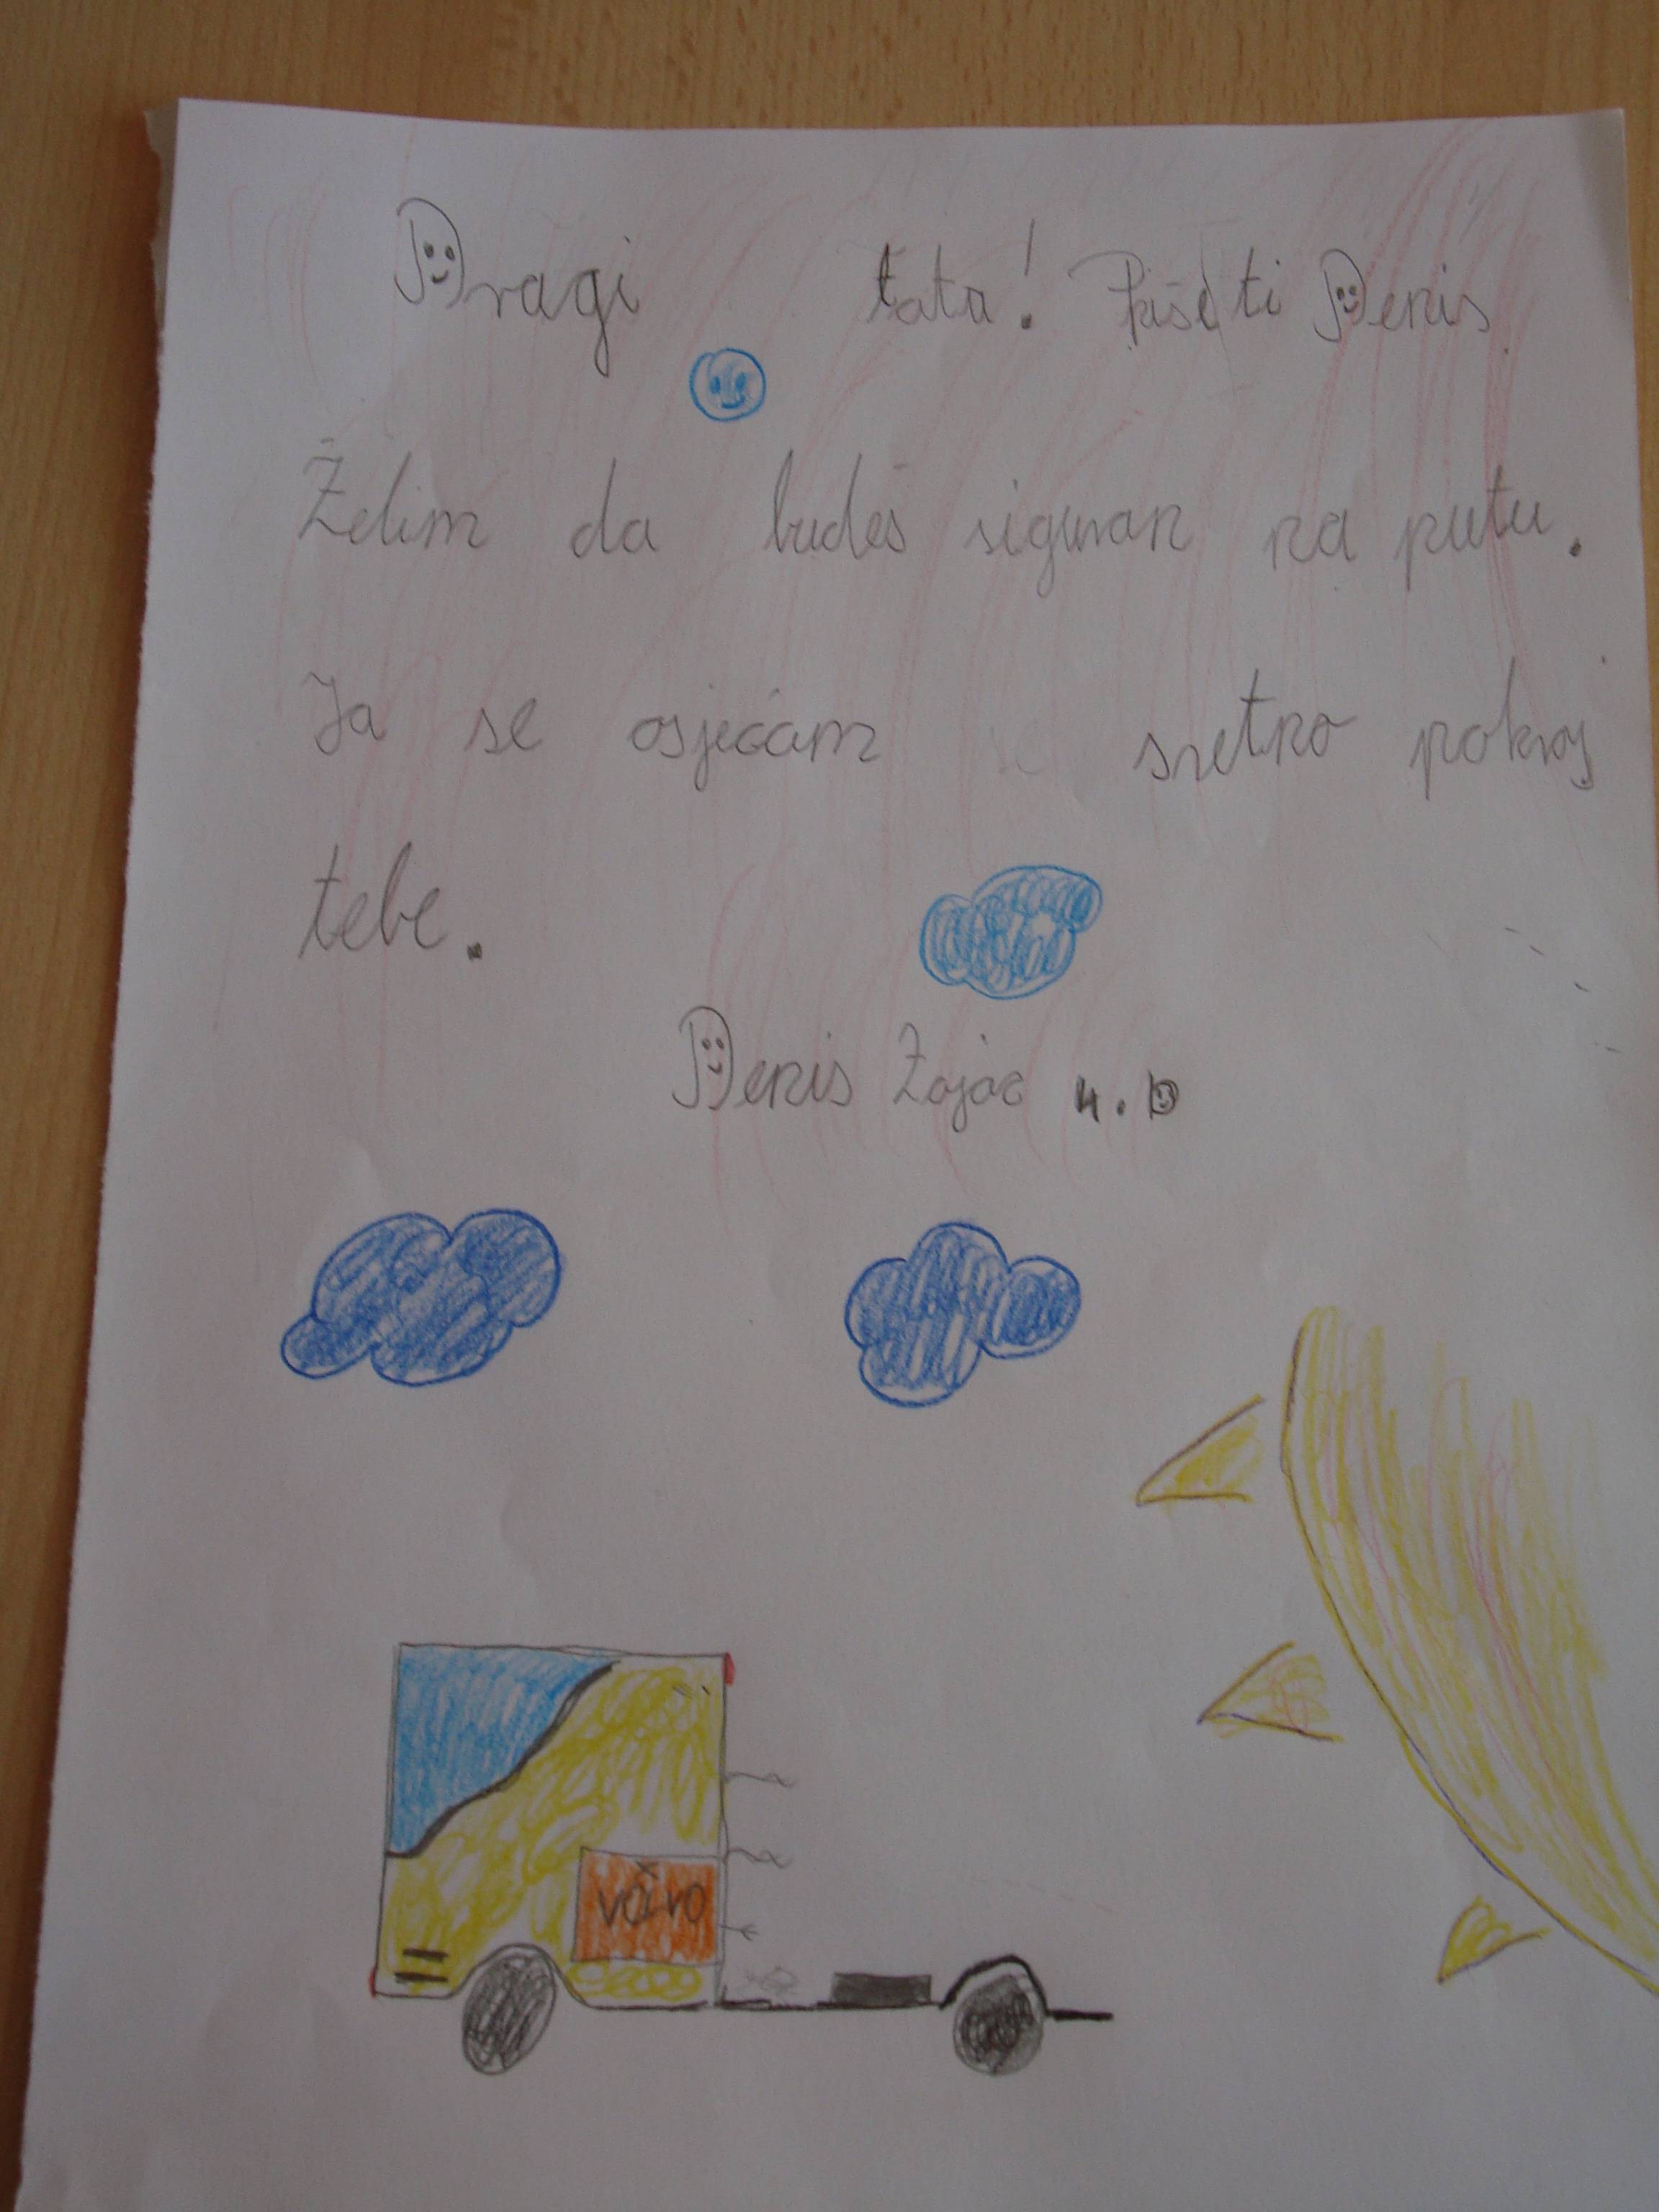 Dragi tata! Piše ti Denis.
Želim da budeš siguran na putu.
Ja se osjećam sretno pokraj
tebe.
Denis Zajac 4.D
VOLVO